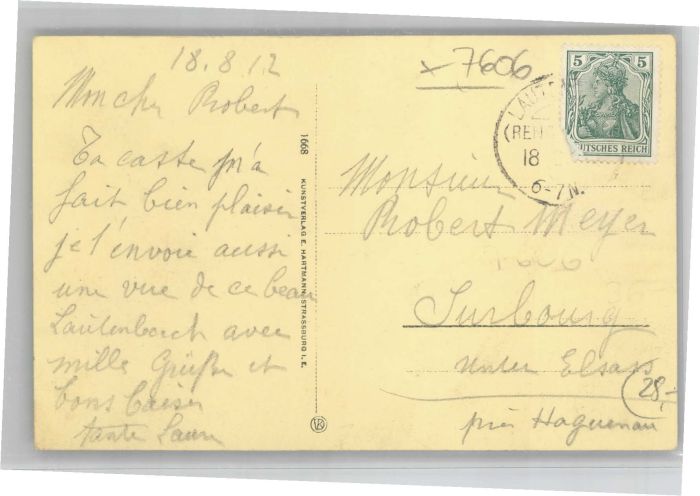 18.8.12
Mon cher Robert
Ta carte m'a
fait bien plaisir
je t'envoie aussi
une vue de ce beau
Lautenbach avec
mille Grüße et
bons baisers
tante Laure
1668 KUNSTVERLAG E. HARTMANN, STRASSBURG I. E.
x 7606
5 5
DEUTSCHES REICH
LAUT
(RENC
18
6-7N.
Monsieur
Robert Meyer
Surbourg
Unter Elsass
près Haguenau
28,-